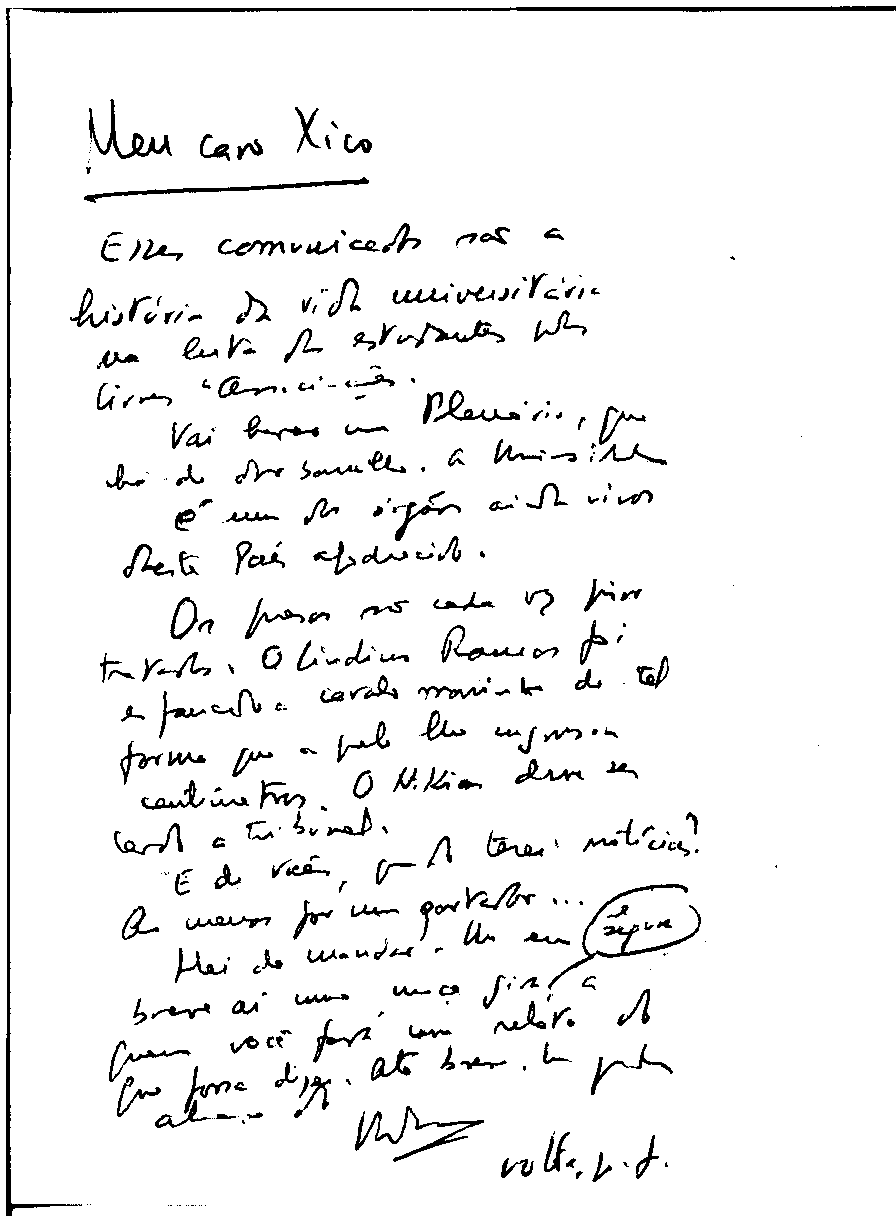 Meu caro Xico
Esses comunicados são a
história da vida universitária
na luta dos estudantes pelas
livres "Associações.
Vai haver um Plenário, que
há-de dar barulho. A Universidade
é um dos órgãos ainda vivos
deste País apodrecido.
Os presos são cada vez pior
tratados. O Lindino Ramos foi
espancado a cavalo marinho de tal
forma que a pele lhe engrossou
centímetros. O N. Kias deve ser
levado a Tribunal.
E de vocês, quando terei notícias?
Ao menos por um portador...
Hei-de mandar-lhe em
e segura
breve aí uma moça gira, a
quem você fará um relato do
que possa dizer. Até breve. Um
abraço do
volte, p. f.